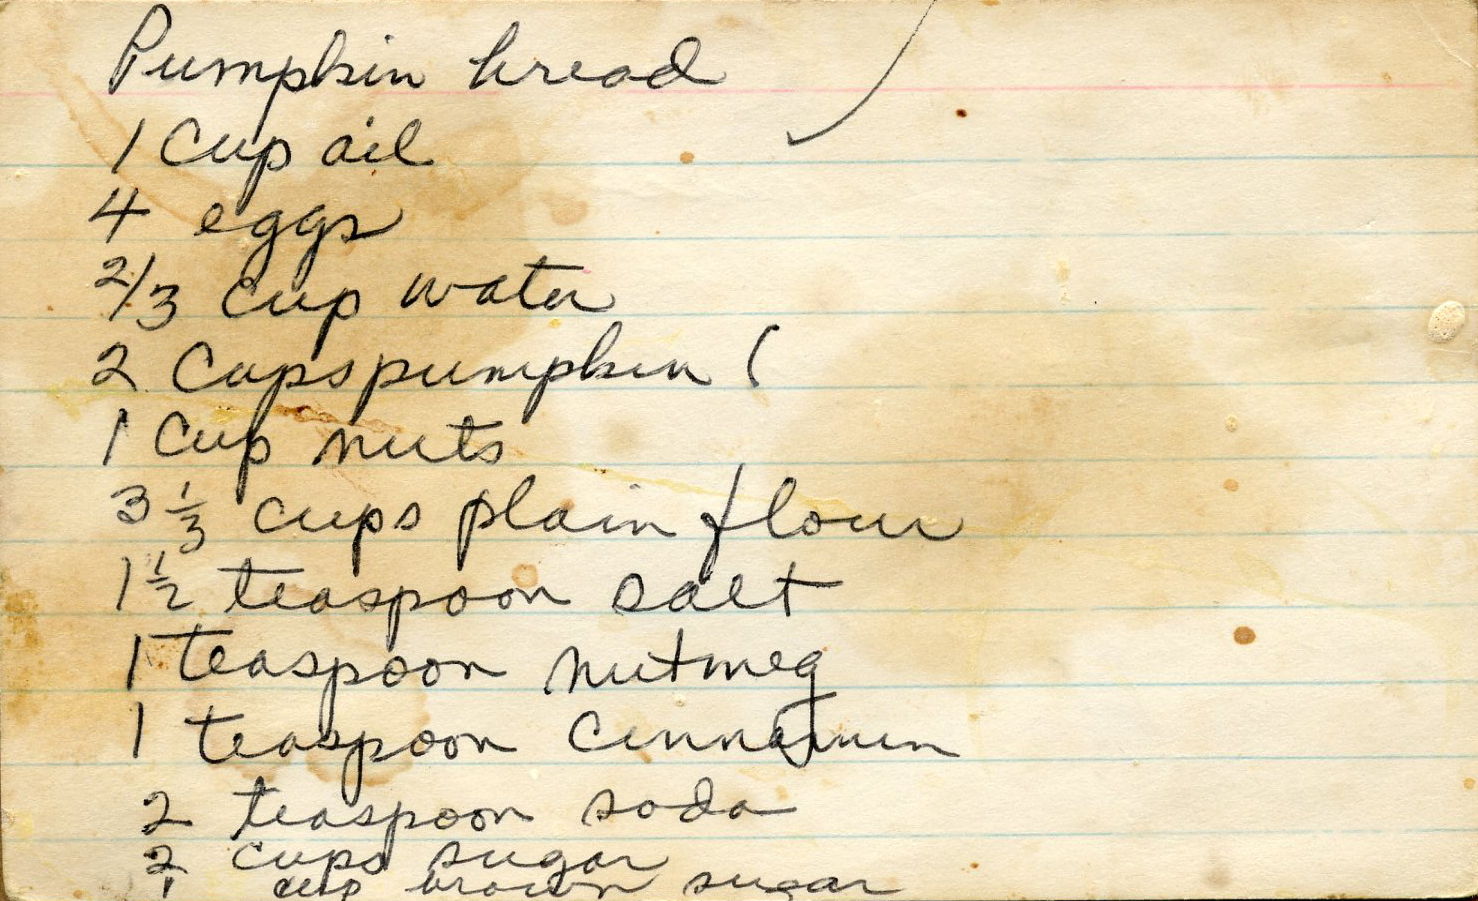 Pumpkin bread
1 Cup oil
4 eggs
2/3 cup water
2 Cups pumpkin (
1 Cup nuts
3 1/3 cups plain flour
1 1/2 teaspoon salt
1 teaspoon nutmeg
1 teaspoon Cinnamin
2 teaspoon soda
2 cups sugar
1 cup brown sugar